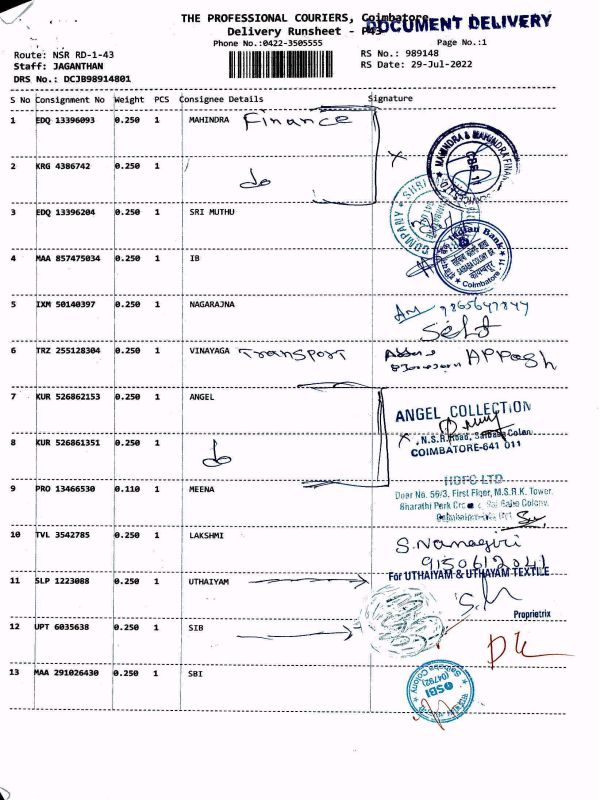 THE PROFESSIONAL COURIERS, Coimbatore
DOCUMENT DELIVERY
Delivery Runsheet - P43
Phone No.:0422-3505555
Page No.:1
Route: NSR RD-1-43
RS No.: 989148
Staff: JAGANTHAN
RS Date: 29-Jul-2022
DRS No.: DCJB98914801
S No Consignment No Weight PCS Consignee Details Signature
1 EDQ 13396093 0.250 1 MAHINDRA Finance
2 KRG 4386742 0.250 1 do
3 EDQ 13396204 0.250 1 SRI MUTHU
4 MAA 857475034 0.250 1 IB
Indian Bank
SAIBABA COLONY BR
Coimbatore 11
5 IXM 50140397 0.250 1 NAGARAJNA
6 TRZ 255128304 0.250 1 VINAYAGA TRANSPORT
7 KUR 526862153 0.250 1 ANGEL
ANGEL COLLECTION
N.S.R.Road, Saibaba Colony
COIMBATORE-641 011
8 KUR 526861351 0.250 1 do
9 PRO 13466530 0.110 1 MEENA
HDFC LTD
Door No. 56/3, First Floor, M.S.R.K. Tower.
Bharathi Park Cross Sai Baba Colony.
10 TVL 3542785 0.250 1 LAKSHMI
9150612041
11 SLP 1223088 0.250 1 UTHAIYAM
For UTHAIYAM & UTHAYAM TEXTILE
Proprietrix
12 UPT 6035638 0.250 1 SIB
13 MAA 291026430 0.250 1 SBI
SBI
(04792)
Saibaba Colony